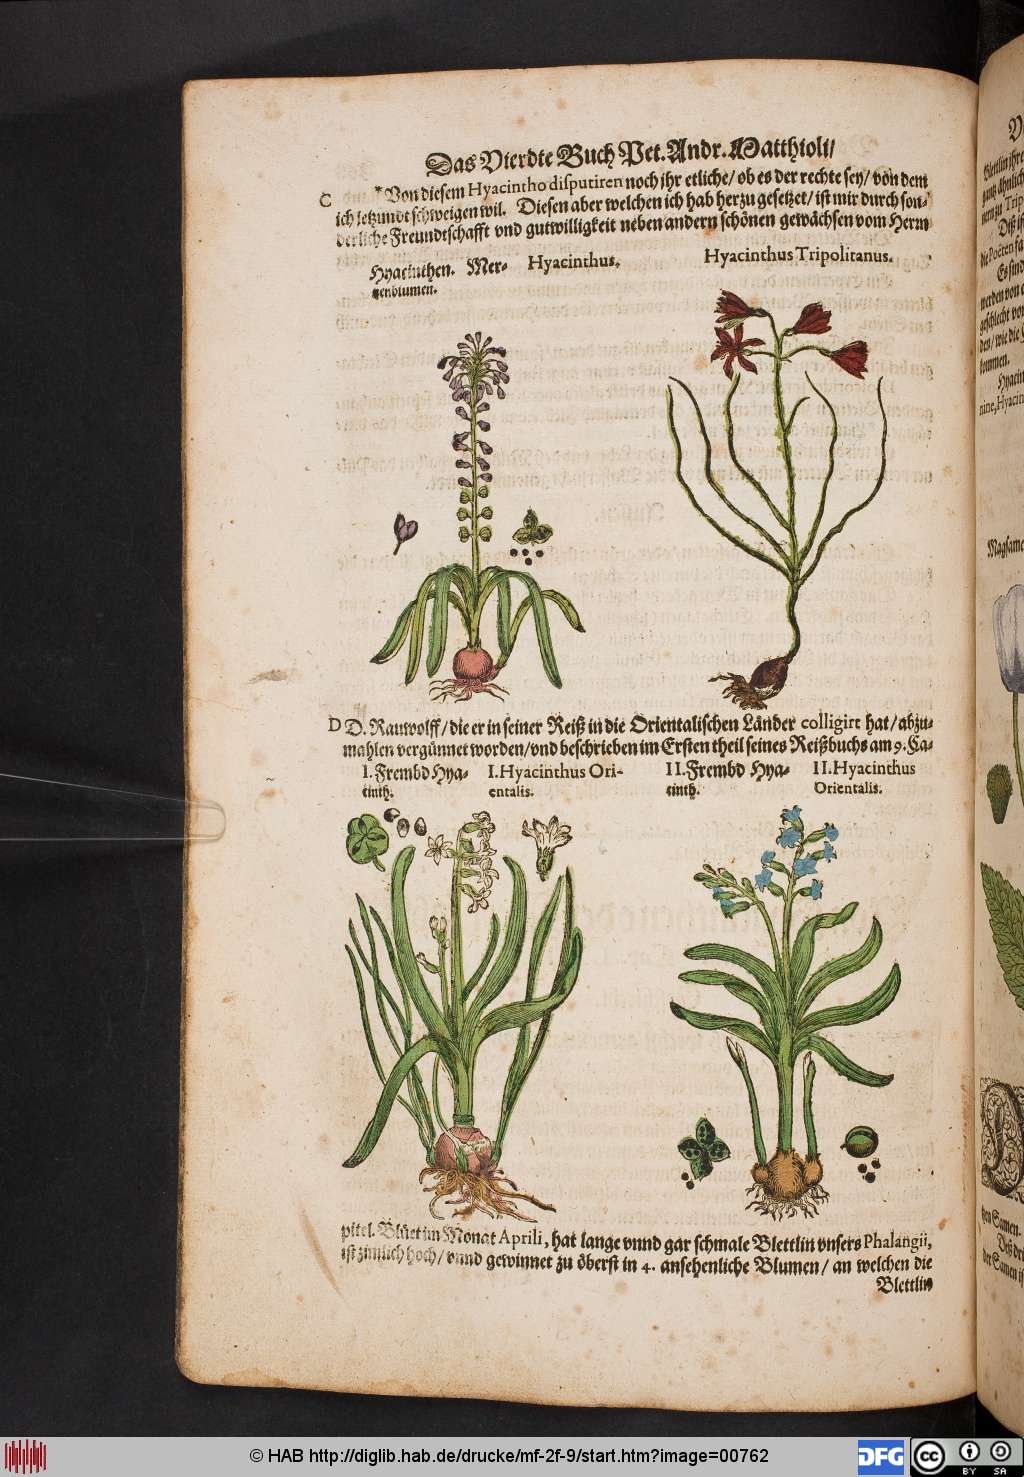 Das Vierdte Buch Pet. Andr. Matthioli/
C
* Von diesem Hyacintho disputiren noch jhr etliche/ ob es der rechte sey/ von dem
ich jetzundt schweigen wil. Diesen aber welchen ich hab herzu gesetzet/ ist mir durch son-
derliche Freundtschafft vnd gutwilligkeit neben andern schönen gewächsen vom Herrn
Hyacinthen. Mer-
tzenblumen.
Hyacinthus.
Hyacinthus Tripolitanus.
D
D. Rauwolff/ die er in seiner Reiß in die Orientalischen Länder colligirt hat/ abzu-
mahlen vergünnet worden/ vnd beschrieben im Ersten theil seines Reißbuchs am 9. Ca-
I. Frembd Hya-
cinth.
I. Hyacinthus Ori-
entalis.
II. Frembd Hya-
cinth.
II. Hyacinthus
Orientalis.
pitel. Blüet im Monat Aprili, hat lange vnnd gar schmale Blettlin vnsers Phalangii,
ist zimlich hoch/ vnnd gewinnet zu öberst in 4. ansehenliche Blumen/ an welchen die
Blettlin
Blettlin jhre
gantz ähnlich
Diß ist
die Poeten fa
Es sind
werden von e
geschlecht vo
den/ wie die
kommen.
Hyacin
nine, Hyacin
Magsame
© HAB http://diglib.hab.de/drucke/mf-2f-9/start.htm?image=00762
DFG
cc
BY SA